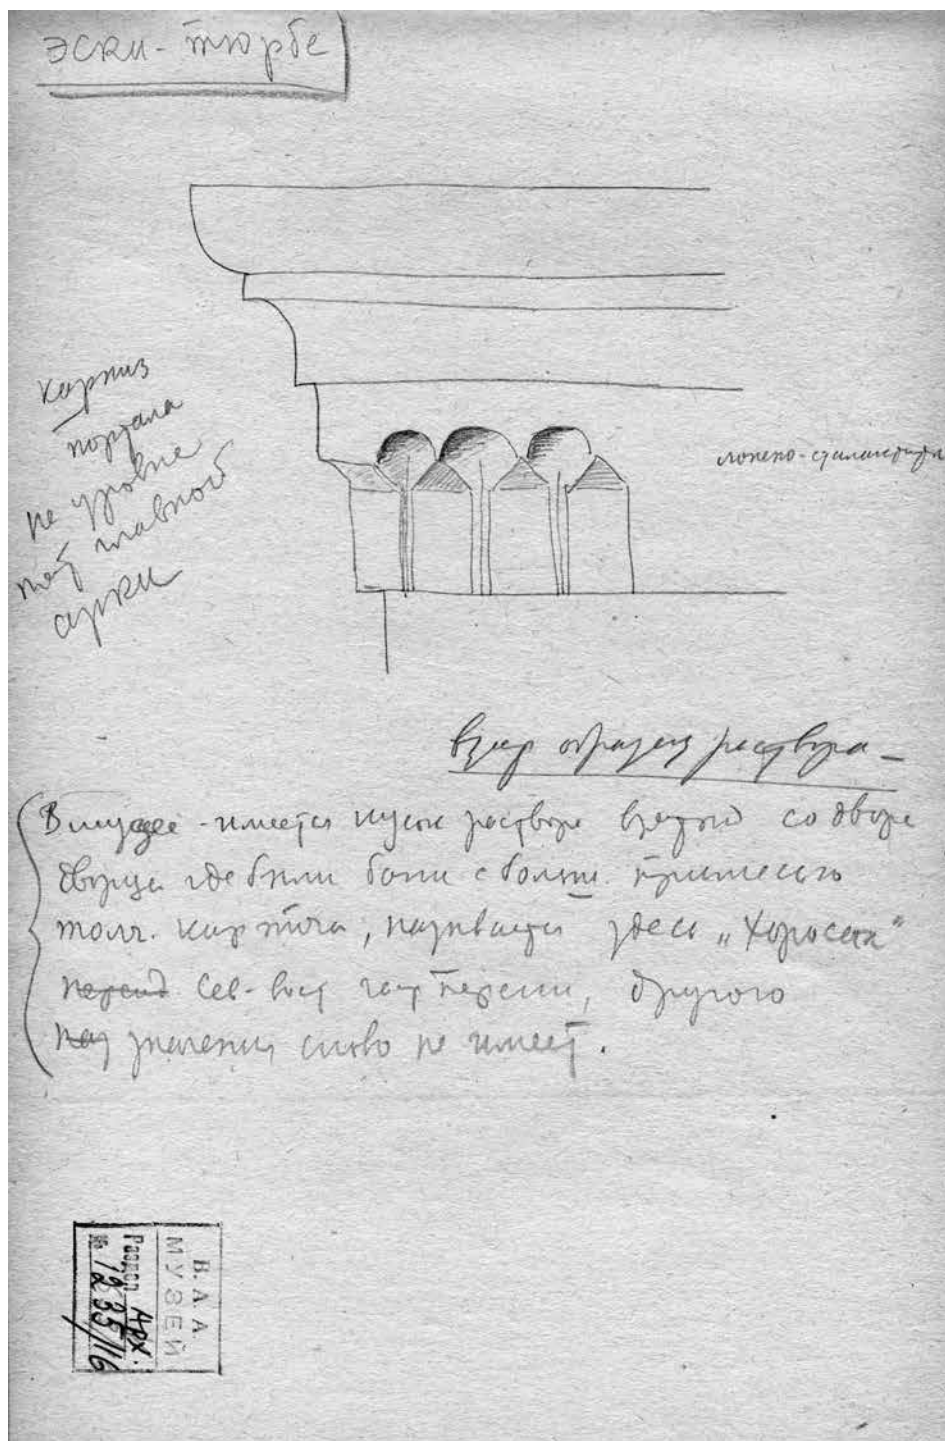 эски-тюрбе
карниз
портала
на уровне
пят главной
арки
ложено-сталактиты
взят образец раствора –
В музее - имеется кусок раствора взятый со двора
дворца где были бани с больш. примесью
толч. кирпича, называется здесь „Хоросан“
персид сев-вост час персии, другого
наз значения слово не имеет.
В. А. А.
МУЗЕЙ
Раздел Арх.
№ 1235/116